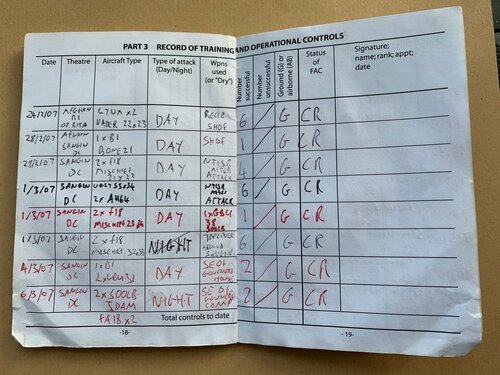 PART 3 RECORD OF TRAINING AND OPERATIONAL CONTROLS
Date Theatre Aircraft Type Type of attack (Day/Night) Wpns used (or "Dry") Number successful Number unsuccessful Ground (G) or airborne (AB) Status of FAC Signature; name; rank; appt; date
24/2/07 AFGHAN LYNX x2 DAY 6 / G CR
28/2/07 AFGHAN SANGIN DC 1 x B1 BONE 21 DAY SHOF 1 / G CR
28/2/07 SANGIN DC 2 x F18 MISCHIEF DAY NTISR ATTACK 4 / G CR
1/3/07 SANGIN DC 2 x AH64 DAY NTISR ATTACK 6 / G CR
1/3/07 SANGIN DC 2 x F18 MISCHIEF DAY 1xGBU 38 1 / G CR
1/3/07 SANGIN DC 2 x F18 MISCHIEF NIGHT SANGIN 6 / G CR
4/3/07 SANGIN DC 1 x B1 2xGBU31 DAY SE OF 2 / G CR
6/3/07 SANGIN DC 2 x 500LB JDAM NIGHT SE OF 2 / G CR
FA18 x2
Total controls to date
-18- -19-